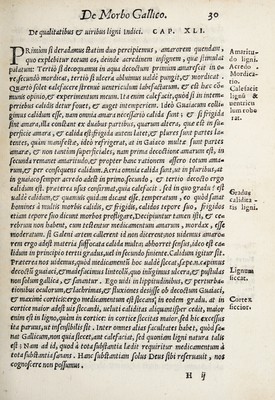 De Morbo Gallico. 30
De qualitatibus & viribus ligni Indici. CAP. XLI.
PRimùm si deradamus statim duo percipiemus, amarorem quendam,
quo explebitur totum os, deinde acredinem insignem, quæ stimulat
palatum: Tertiò si decoquamus in aqua decoctum primùm amarescit in ore,
secundò mordicat, tertiò si ulcera abluimus valdè purgit, & mordicat.
Quartò solet calefacere stremuè ventriculum labefactatum, & est hæc communis
opinio, & experimentum novum. Ita enim calefacit, quòd si in intemperiebus
calidis detur fouet, & auget intemperiem. Ideò Guaiacum colligimus
calidum esse, nam omnia amara necessariò calida sunt: & si frigida
sint amara, illa constant ex duabus partibus, quarum altera, quæ est in superficie
amara, & calida est frigida autem latet, & plures sunt partes latentes,
quàm manifestæ, ideò refrigerat, at in Guiaco multæ sunt partes
amaræ, & non tantùm superficiales, nam prima decoctione amarum est, in
secunda remanet amaritudo, & propter hanc rationem assero totum amarum,
& per consequens calidum. Acria omnia calida sunt, ut in pluribus, at
in guaiaco semper acredo adest in primo, secundo, & tertio decocto ergo
calidum est. præterea usus confirmat, quia calefacit. sed in quo gradu? est
validè calidum, & quamuis quidam dicant esse. temperatum, eo quòd sanat
homines à multis morbis calidis, & frigidis, calidos tepore suo, frigidos
etiam tepore suo dicunt morbos profligare, Decipiuntur tamen isti, & cerebrum
non habent, cum testentur medicamentum amarum, mordax, esse
moderatum. si Galeni artem callerent id non dicerent; nos videmus amarorem
ergo adest materia suffocata calida multa; abhorret sensus, ideo est calidum
in principio tertij gradus, aut in fine secundi. Calidum igitur est.
Præterea nos videmus, quòd medicamentū hoc ualdè siccat. sæpe .n. capimus
decoctũ guaiaci, & madefacimus linteolũ, quo inũgimus ulcera, & pustulas
non solum gallica, & sanantur. Ego vidi in lippitudinibus, & perturbationibus
oculorum, & lachrimas, & fluxiones desijsse ob decoctum Guaiaci,
& maximè corticis: ergo medicamentum est siccans, in eodem gradu. at in
cortice maior adest uis siccandi, uel uti caliditas aliquantisper cedit, maior
enim est in ligno, quàm in cortice: in cortice siccitas maior, sed hic excessus
ita paruus, ut insensibilis sit. Inter omnes alias facultates habet, quòd sanat
Gallicum, non quia siccat, aut calefaciat, sed quoniam ligni natura talis
est: Nam ad id, quod à tota substantia lædit requiritur medicamentum à
tota substantia sanans. Hanc substantiam solus Deus sibi reseruauit, nos
cognoscere non possumus.
H ij
Amaritudo
ligni.
Acredo.
Mordicatio.
Calefacit
ligni &
uentriculum
roborat.
Gradus
caliditatis
ligni.
Lignum
siccat.
Cortex
siccior.